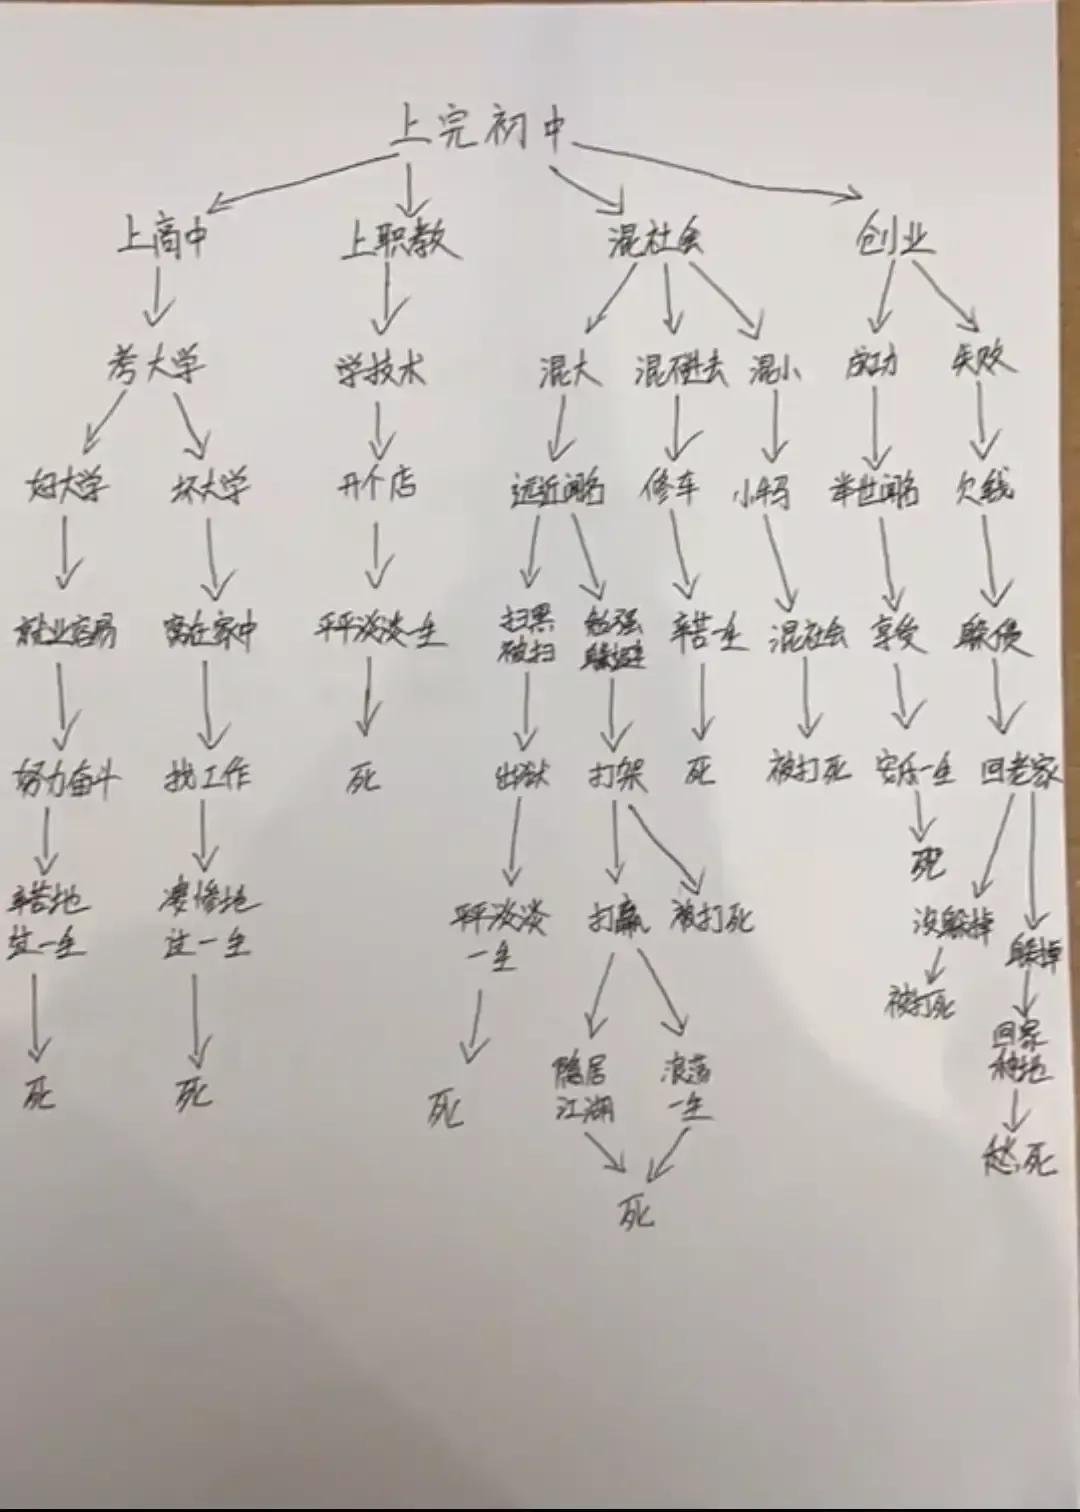 上完初中
上高中 上职教 混社会 创业
考大学 学技术 混大 混不进去 混小 成功 失败
好大学 坏大学 开个店 远近闻名 修车 小牛马 举世闻名 欠钱
就业容易 窝在家中 平平淡淡一生 扫黑 勉强 辛苦一生 混社会 享受 躲债
被扫 躲避
努力奋斗 找工作 死 出狱 打架 死 被打死 安乐一生 回老家
死
辛苦地 凄惨地 平平淡淡 打赢 被打死 没躲掉
过一生 过一生 一生 躲掉
被打死
回家
种地
隐居 浪荡
江湖 一生
死 死 死
愁死
死